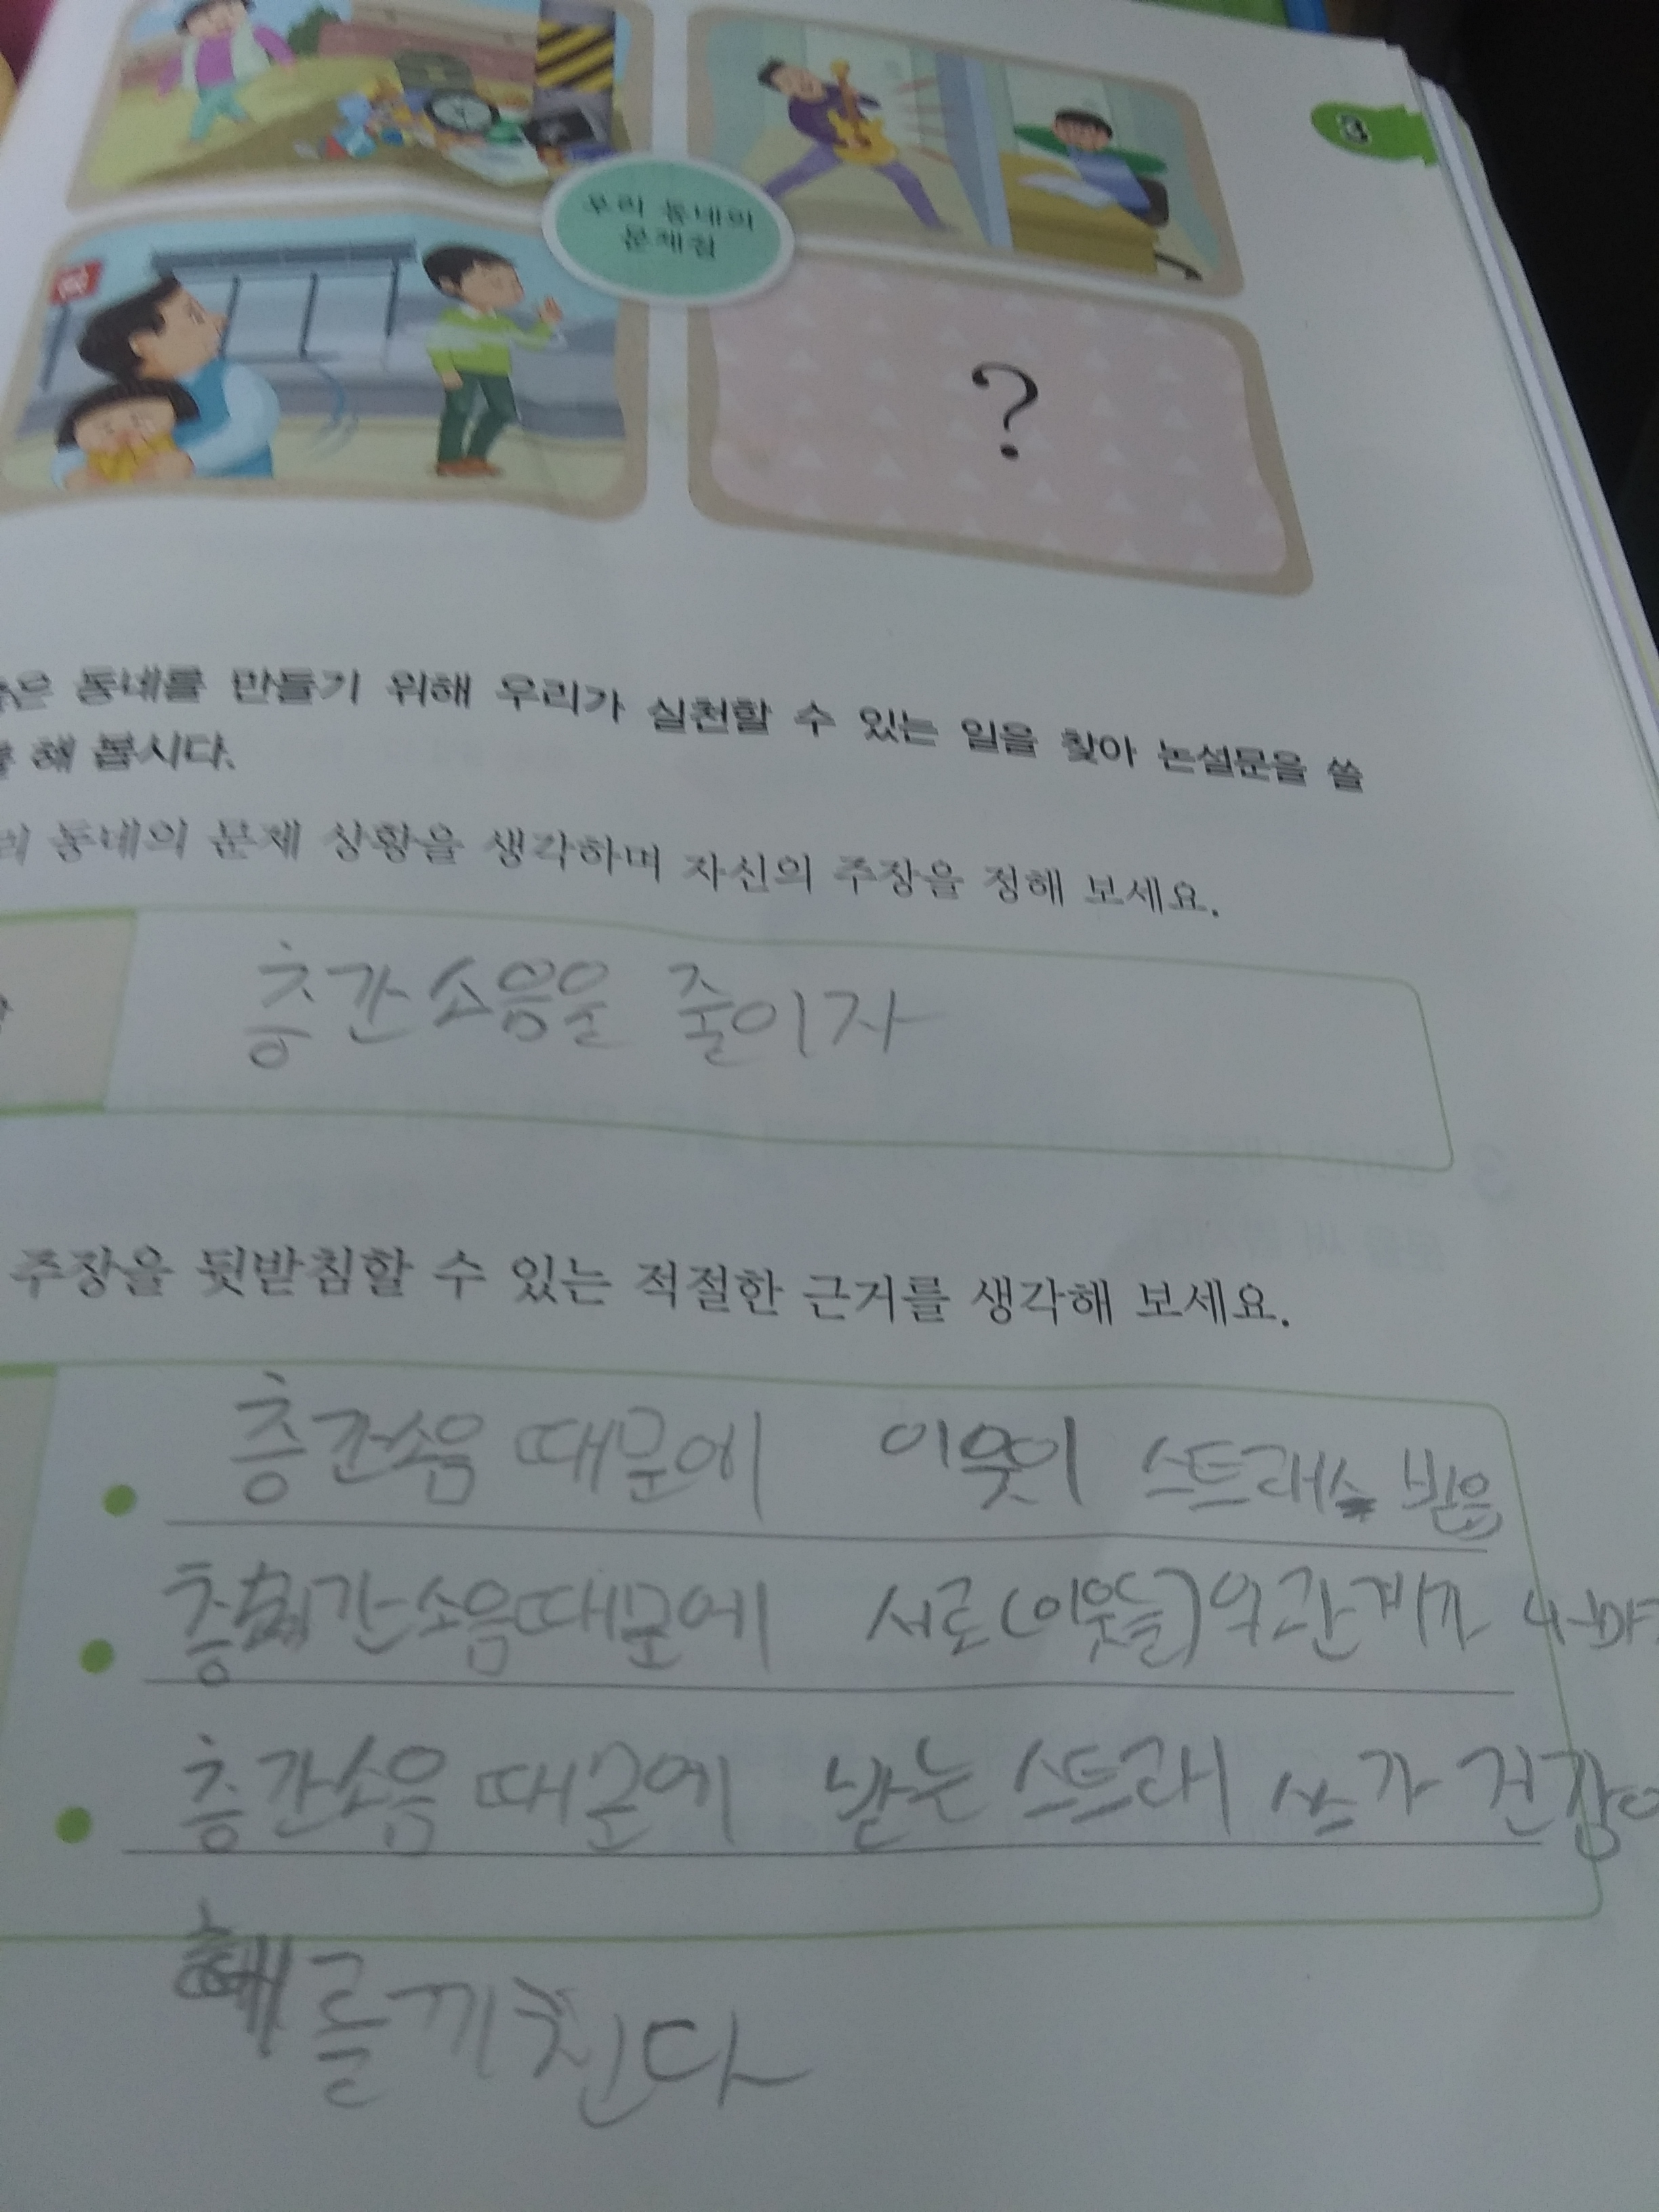 3
우리 동네의
문제점
?
동네를 만들기 위해 우리가 실천할 수 있는 일을 찾아 논설문을 쓸
해 봅시다.
동네의 문제 상황을 생각하며 자신의 주장을 정해 보세요.
층간소음을 줄이자
주장을 뒷받침할 수 있는 적절한 근거를 생각해 보세요.
층간소음 때문에 이웃이 스트래스 받음
층간소음때문에 서로(이웃들)의관계가
층간소음 때문에 받는 스트래스가 건강
해를끼친다